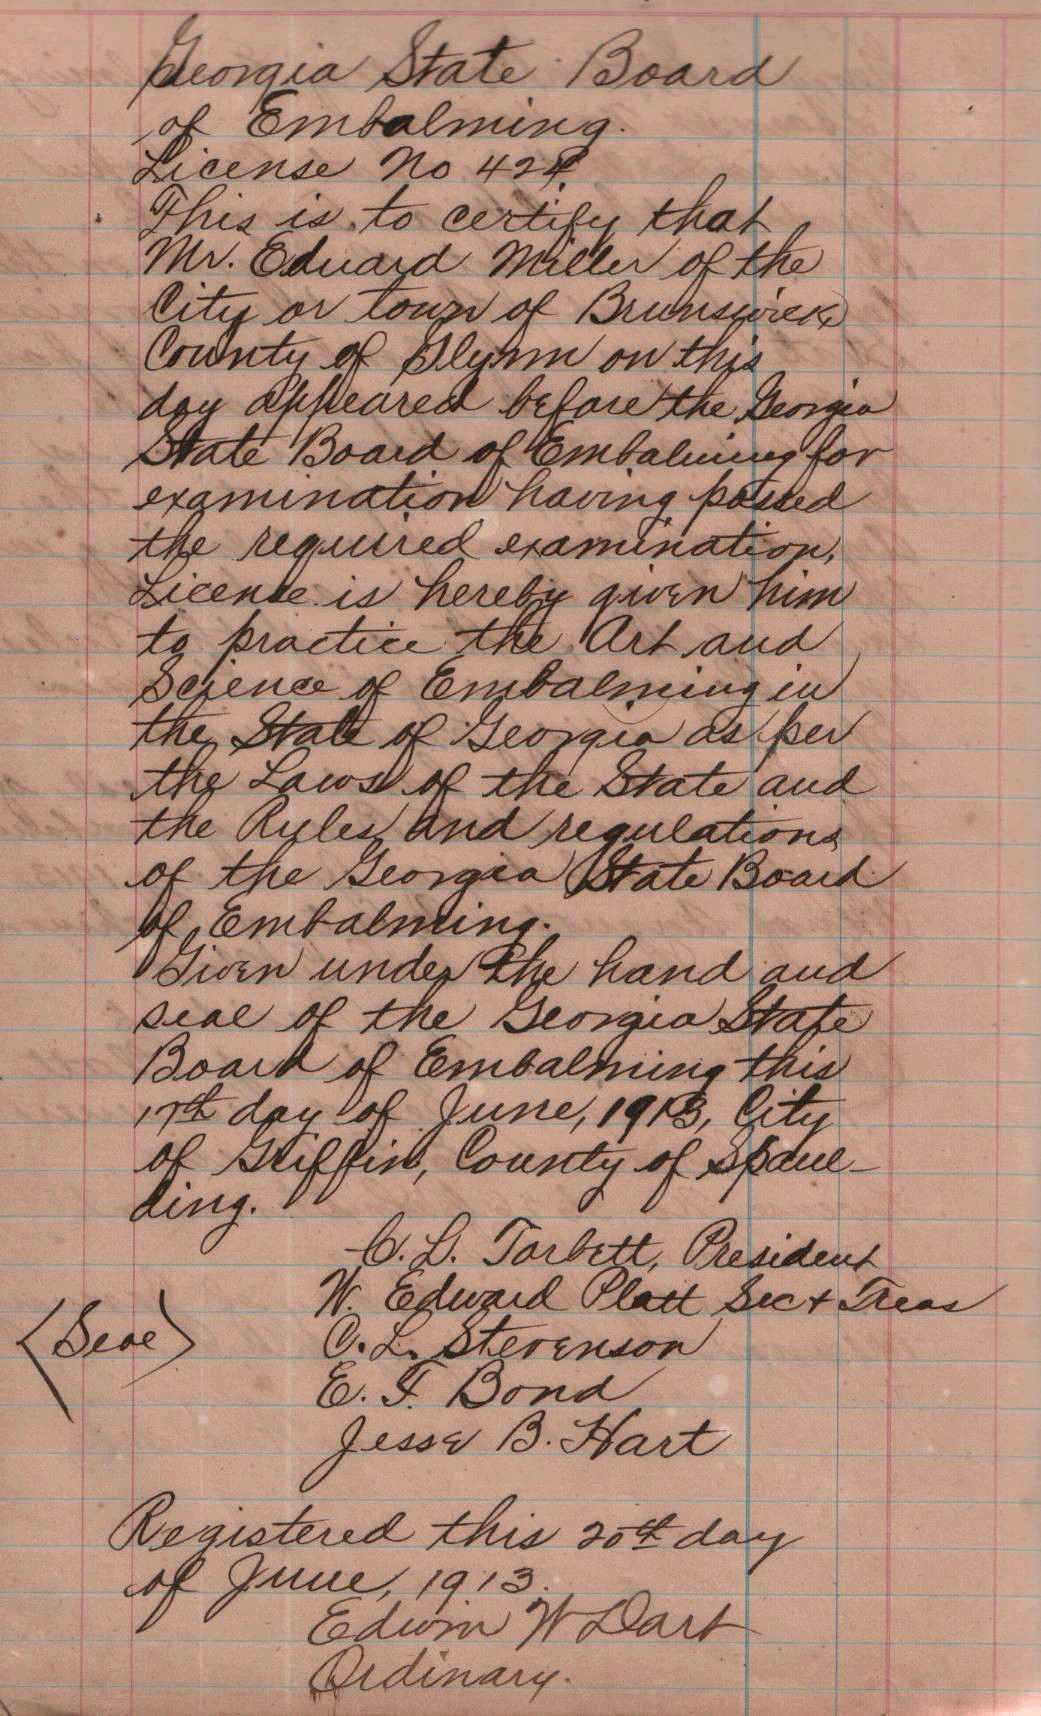 Georgia State Board
of Embalming.
License No 424
This is to certify that
Mr. Eduard Miller of the
City or town of Brunswick
County of Glynn on this
day appeared before the Georgia
State Board of Embalming for
examination having passed
the required examination,
License is hereby given him
to practice the Art and
Science of Embalming in
the State of Georgia as per
the Laws of the State and
the Rules and regulations
of the Georgia State Board
of Embalming.
Given under the hand and
seal of the Georgia State
Board of Embalming this
17th day of June, 1913, City
of Griffin, County of Spaul-
ding.
C. D. Torbett, President
W. Edward Platt Sec + Treas
(Seal) C. L. Stevenson
E. F. Bond
Jesse B. Hart
Registered this 20th day
of June, 1913.
Edwin W Dart
Ordinary.